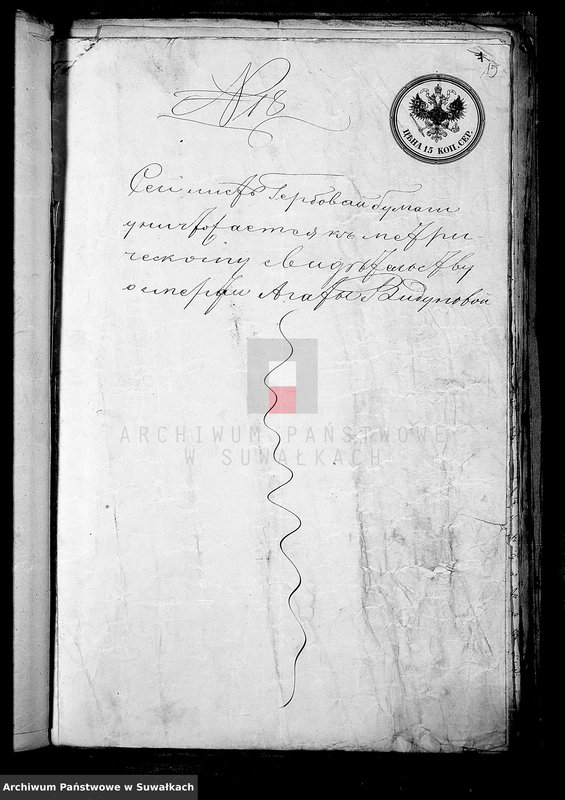 № 18
19
ЦѢНА 15 КОП. СЕР.
Сей листъ Гербовой бумаги
уничтожается къ метри-
ческому свидѣтельству
о смерти Агафьи
ARCHIWUM PAŃSTWOWE
W SUWAŁKACH
Archiwum Państwowe w Suwałkach